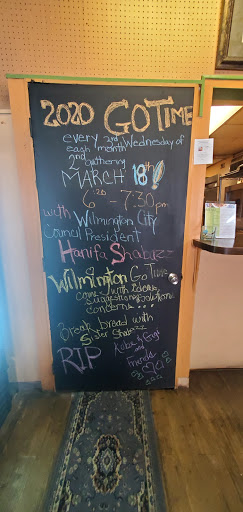 2020 GOTIME
every 2nd
each month Wednesday of
2nd gathering
MARCH 18th!
6 - 7:30 pm
with Wilmington City
Council President
Hanifa Shabazz
Wilmington GoTime
come with Ideas
suggestions solutions
concerns....
Break bread with
Sister Shabazz
RIP
Kobe & Gigi
and
Friends